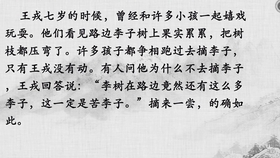 王戎七岁的时候，曾经和许多小孩一起嬉戏
玩耍。他们看见路边李子树上果实累累，把树
枝都压弯了。许多孩子都争相跑过去摘李子，
只有王戎没有动。有人问他为什么不去摘李子
，王戎回答说：“李树在路边竟然还有这么多
李子，这一定是苦李子。”摘来一尝，的确如
此。